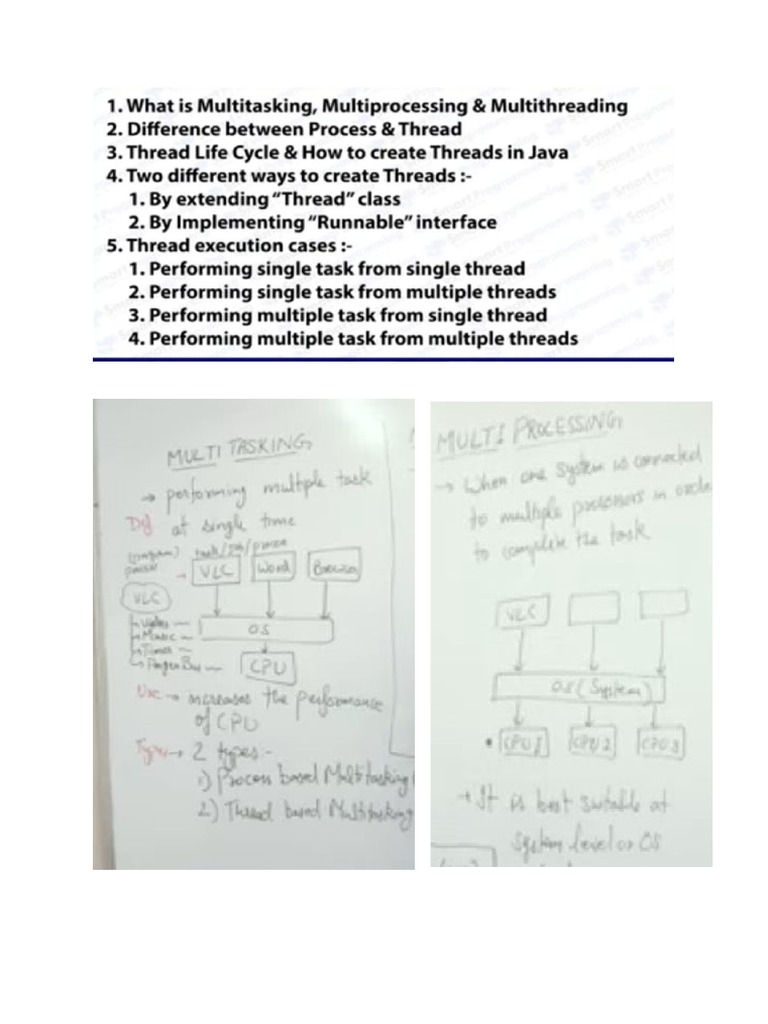 1. What is Multitasking, Multiprocessing & Multithreading
2. Difference between Process & Thread
3. Thread Life Cycle & How to create Threads in Java
4. Two different ways to create Threads :-
1. By extending “Thread” class
2. By Implementing “Runnable” interface
5. Thread execution cases :-
1. Performing single task from single thread
2. Performing single task from multiple threads
3. Performing multiple task from single thread
4. Performing multiple task from multiple threads
MULTI TASKING
→ performing multiple task
Def at single time
VLC Word Browser
VLC
Video
Music
Timer
OS
CPU
Use → increases the performance
of CPU
Types → 2 types:-
1) Process based Multitasking
2) Thread based Multitasking
MULTI PROCESSING
→ When one system is connected
to multiple processors in order
to complete the task
VLC
OS (System)
CPU 1 CPU 2 CPU 3
→ It is best suitable at
system level or OS